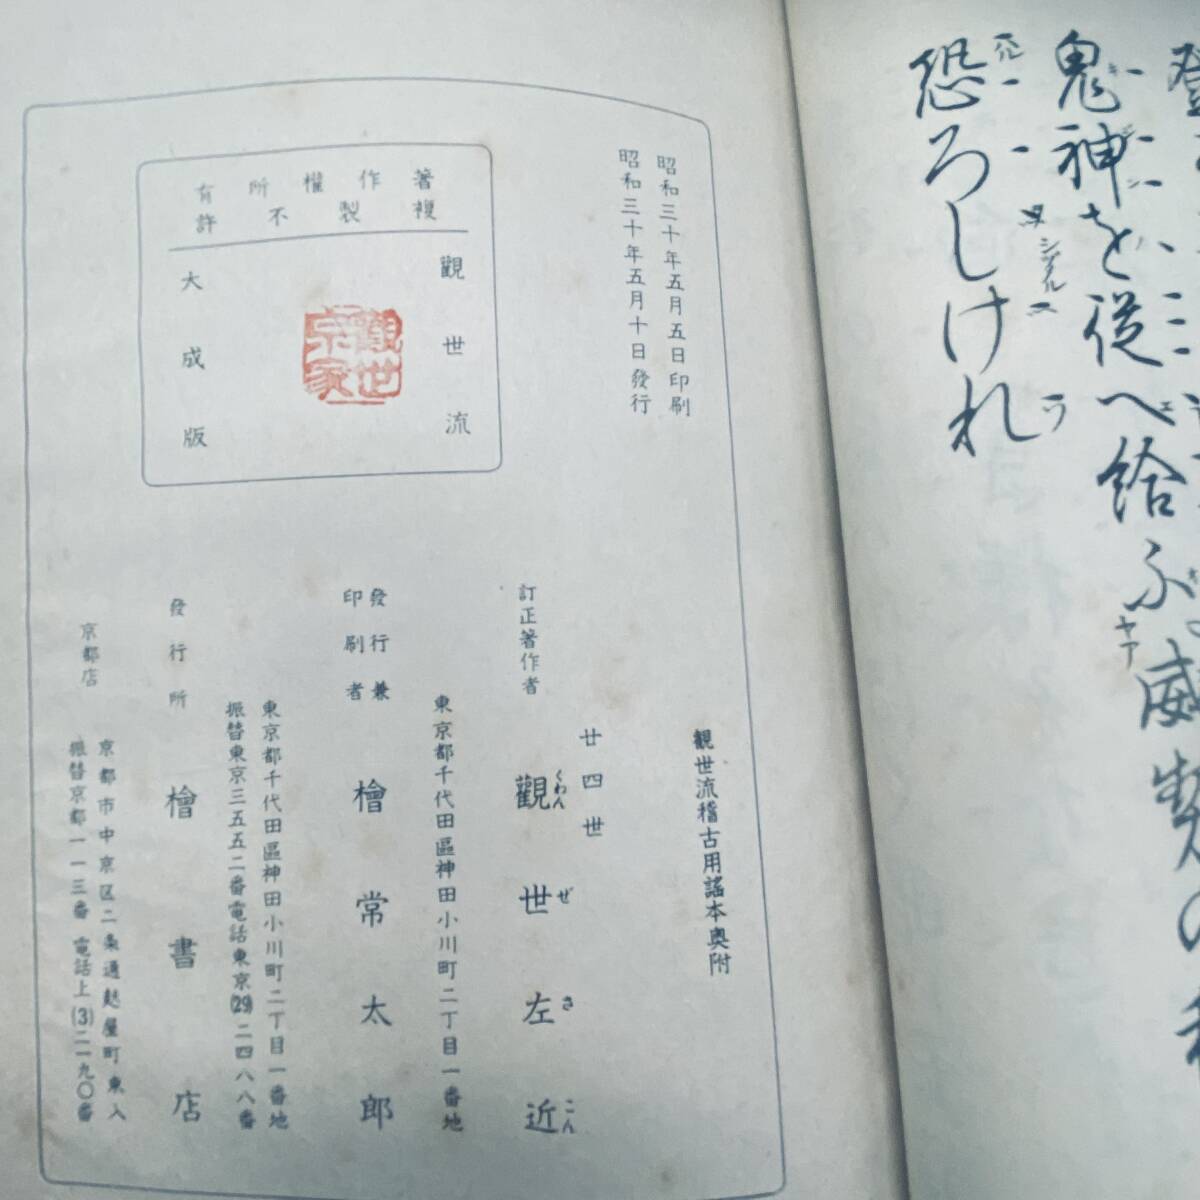 鬼神を従へ給ふ
恐ろしけれ
昭和三十年五月五日印刷
昭和三十年五月十日發行
著作權所有
複製不許
觀世流
大成版
觀世宗家
觀世流稽古用謠本奧附
訂正著作者
廿四世
觀世左近
くわんぜさこん
東京都千代田區神田小川町二丁目一番地
發行兼
印刷者
檜常太郎
東京都千代田區神田小川町二丁目一番地
振替東京三五五二番電話東京(29)二四八八番
發行所
檜書店
京都店
京都市中京区二条通麩屋町東入
振替京都一一三番 電話上(3)二一九〇番